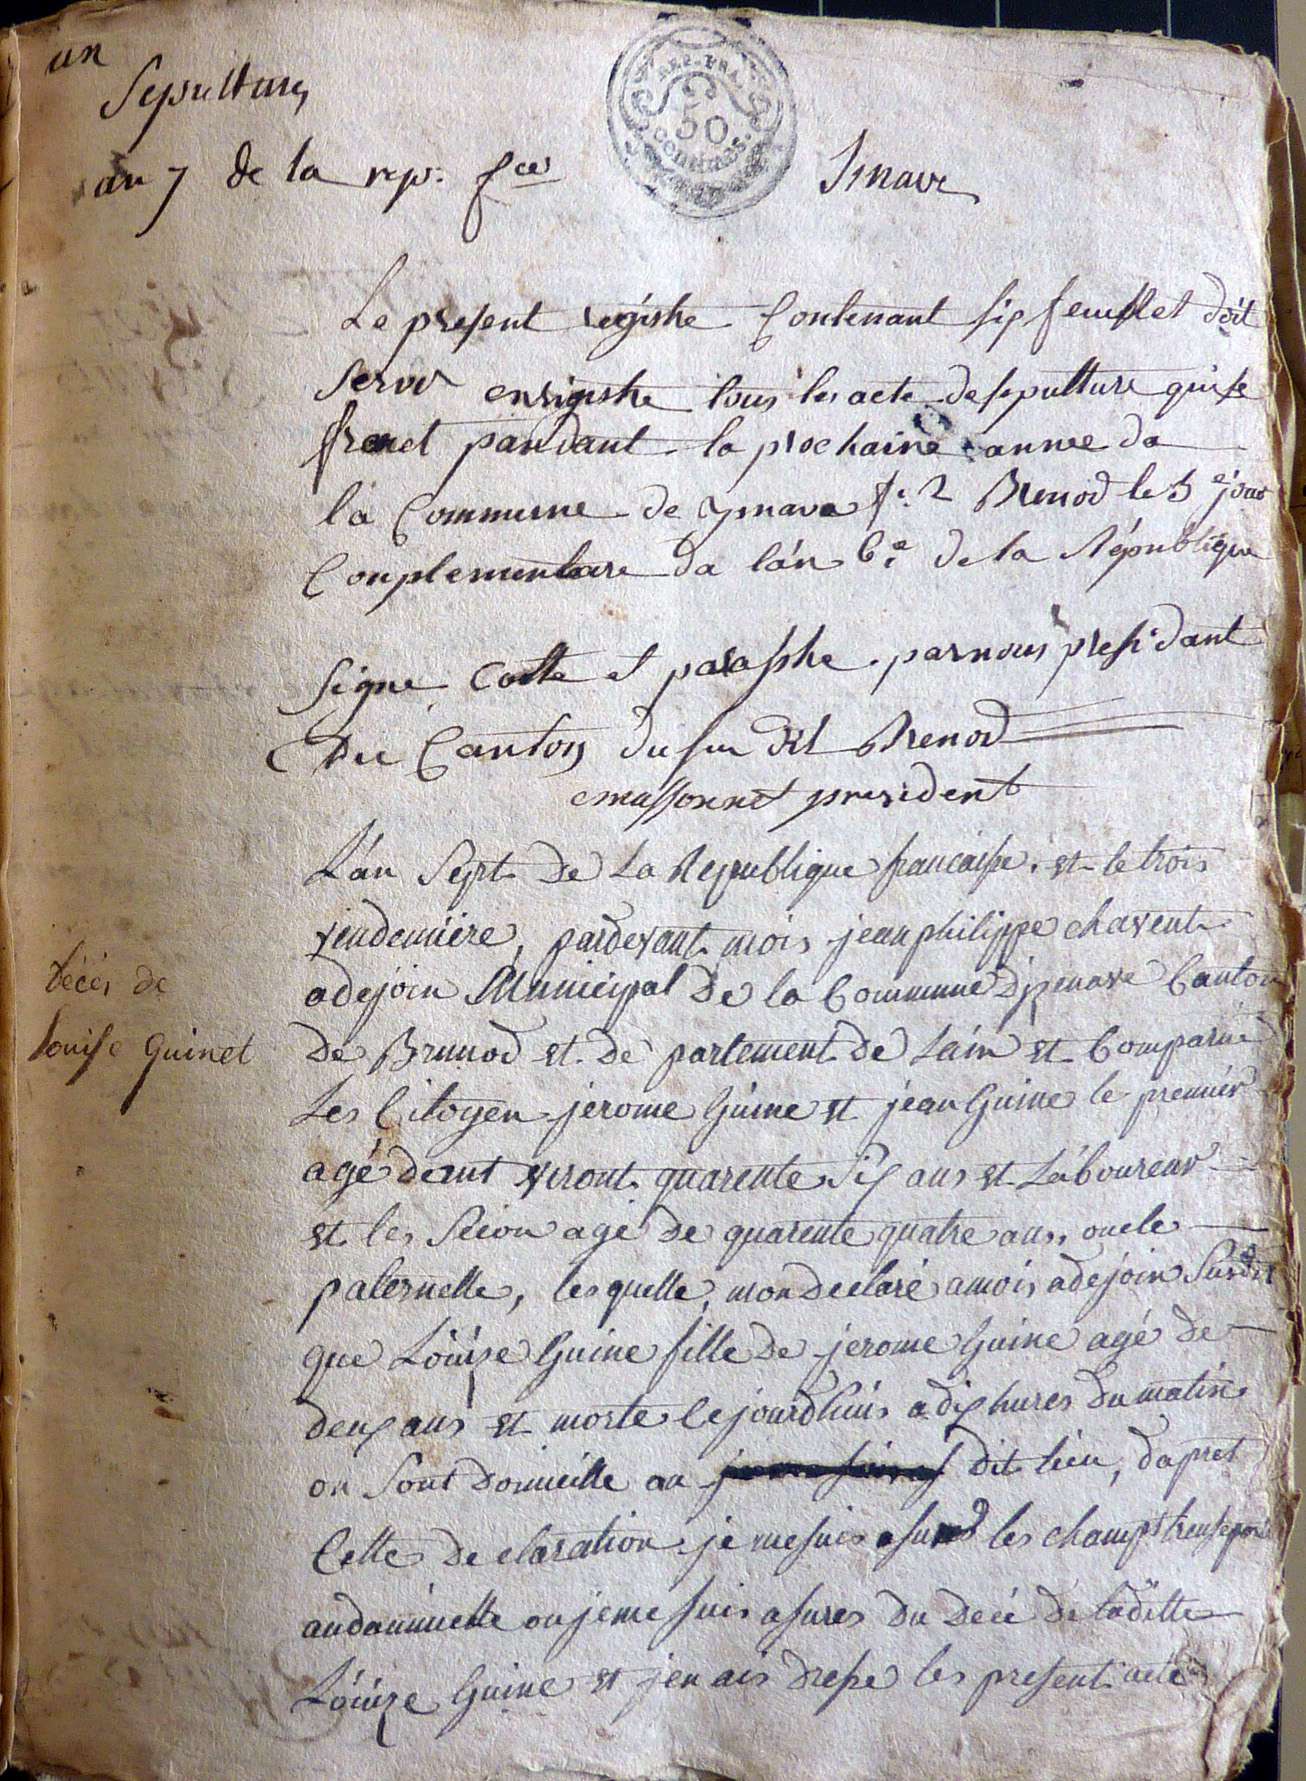 un
Sepultures
an 7 de la rep. fce
REP. FRA.
50
centimes.
Isnave
Le present regishe Contenant six feuillet doit
Servir enrigishe tous les acte de sepulture qui se
front pandant la prochaine annee da
la Commune de ysnave Brenod le 5e jour
Conplementare da lán 6.e de la République
Signe Cotte et paraphe par nous presidant
Du Canton du sur dit Brenod
massonnet president
L'an Sept de La Republique francaisse. et le trois
vendemiere, pardevant mois jean philippe chavent
adejoin Municipal De la Commune Disenave Canton
De Brenod et de partement de Lain et Comparue
Les Citoyen jerome Guine et jean Guine le premier
agé dant viront quarente six ans et Laboureur
et les Seion agé de quarente quatre ans, oncle
paternelle, lesquelle, mon declaré a mois adejoin Surdit
que Loüize Guine fille de jerome Guine agé de
deux ans et morte cejourdhuis a dix hures du matin
on Sont Domicille au dit lieu, dapret
Cette declaration je me suis les champs
ou je me suis asures Du Decé De laditte
Loüize Guine et jen ais drese les present acte
Décès de
Louise Guinet